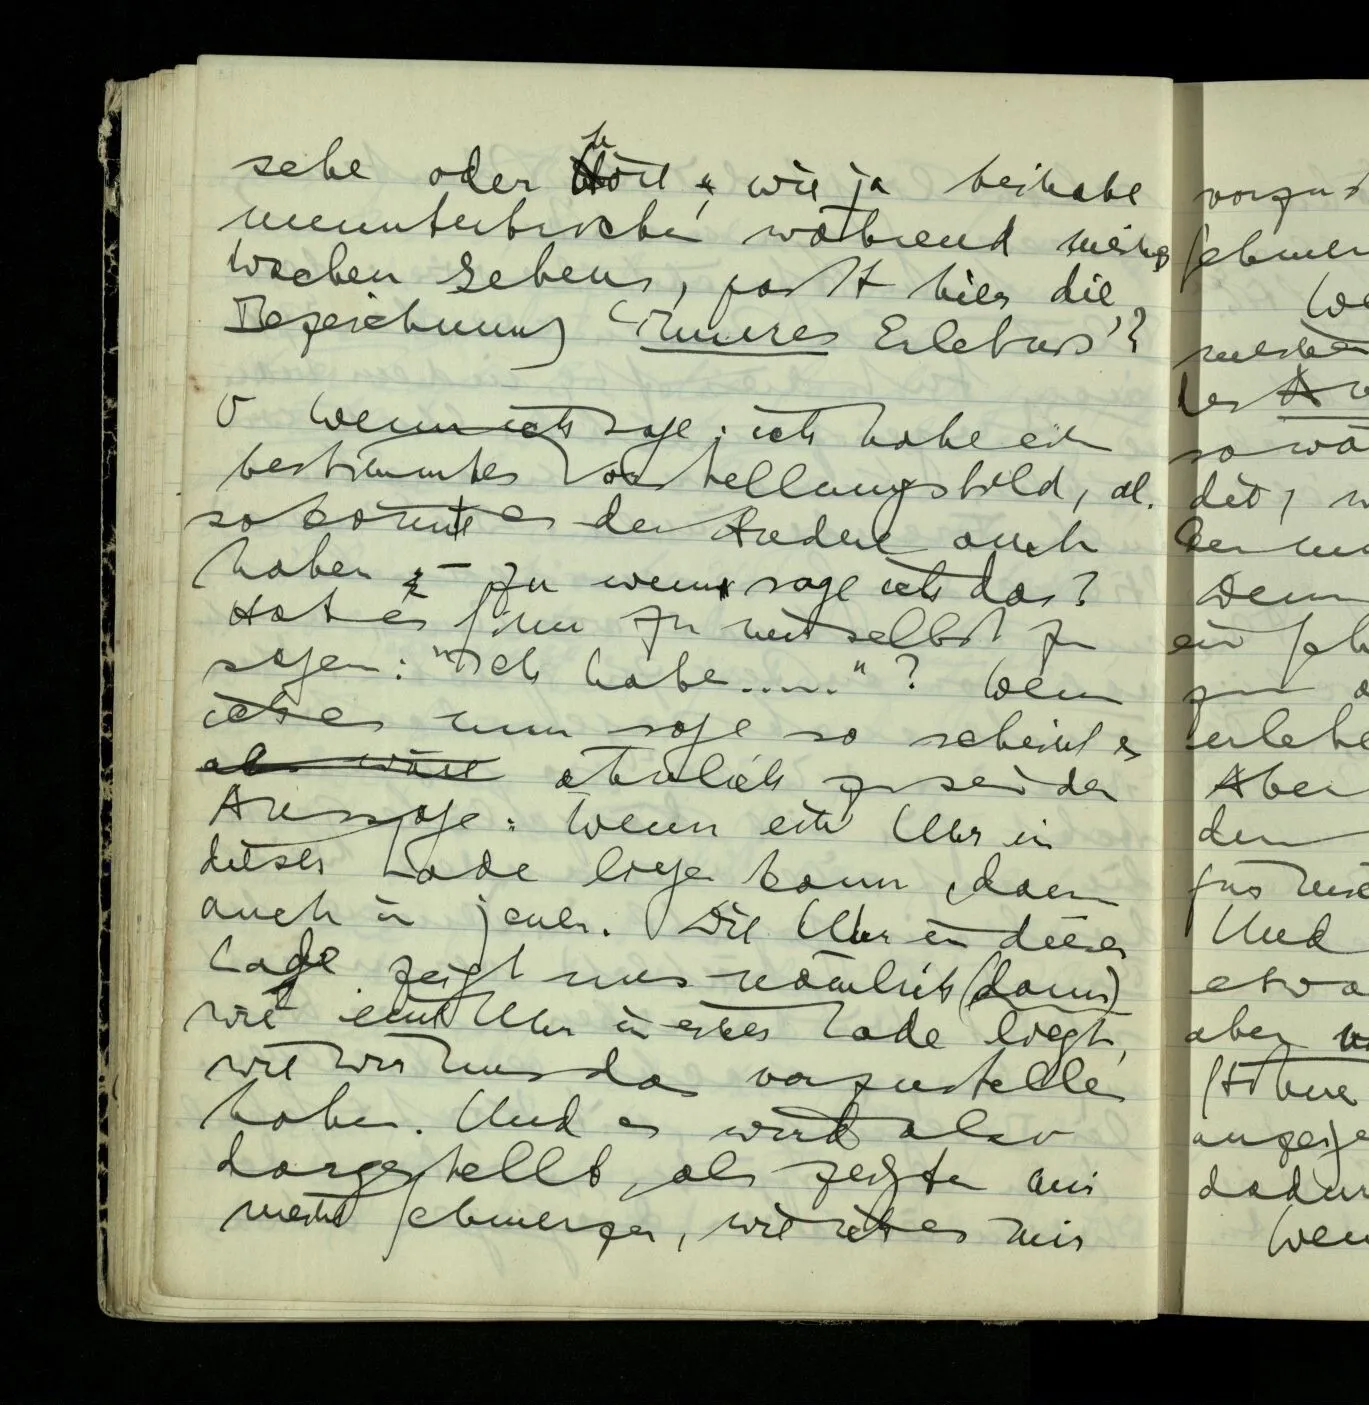 sehe oder höre, wie ja beinahe
ununterbrochen während meines
wachen Lebens, paßt hier die
Bezeichnung 'inneres Erlebnis'?
Wenn ich sage: ich habe ein
bestimmtes Vorstellungsbild, al.
so könnte es der Andere auch
haben – zu wem sage ich das?
Hat es Sinn zu mir selbst zu
sagen: "Ich habe....."? Wenn
ich es nun sage so scheint es
als wäre ähnlich zu sein der
Aussage: Wenn eine Uhr in
dieser Lade liegen kann, dann
auch in jener. Die Uhr in dieser
Lade zeigt uns nämlich (dann)
wie eine Uhr in einer Lade liegt,
wie wir uns das vorzustellen
haben. Und es wird also
dargestellt, als zeigten mir
meine Schmerzen, wie ich es mir
vorzust
Schmer
des
so wä
die, w
Denn
ein
erlebe
Aber
den
Und
etwa
aber
anzeige
dadur
Wen